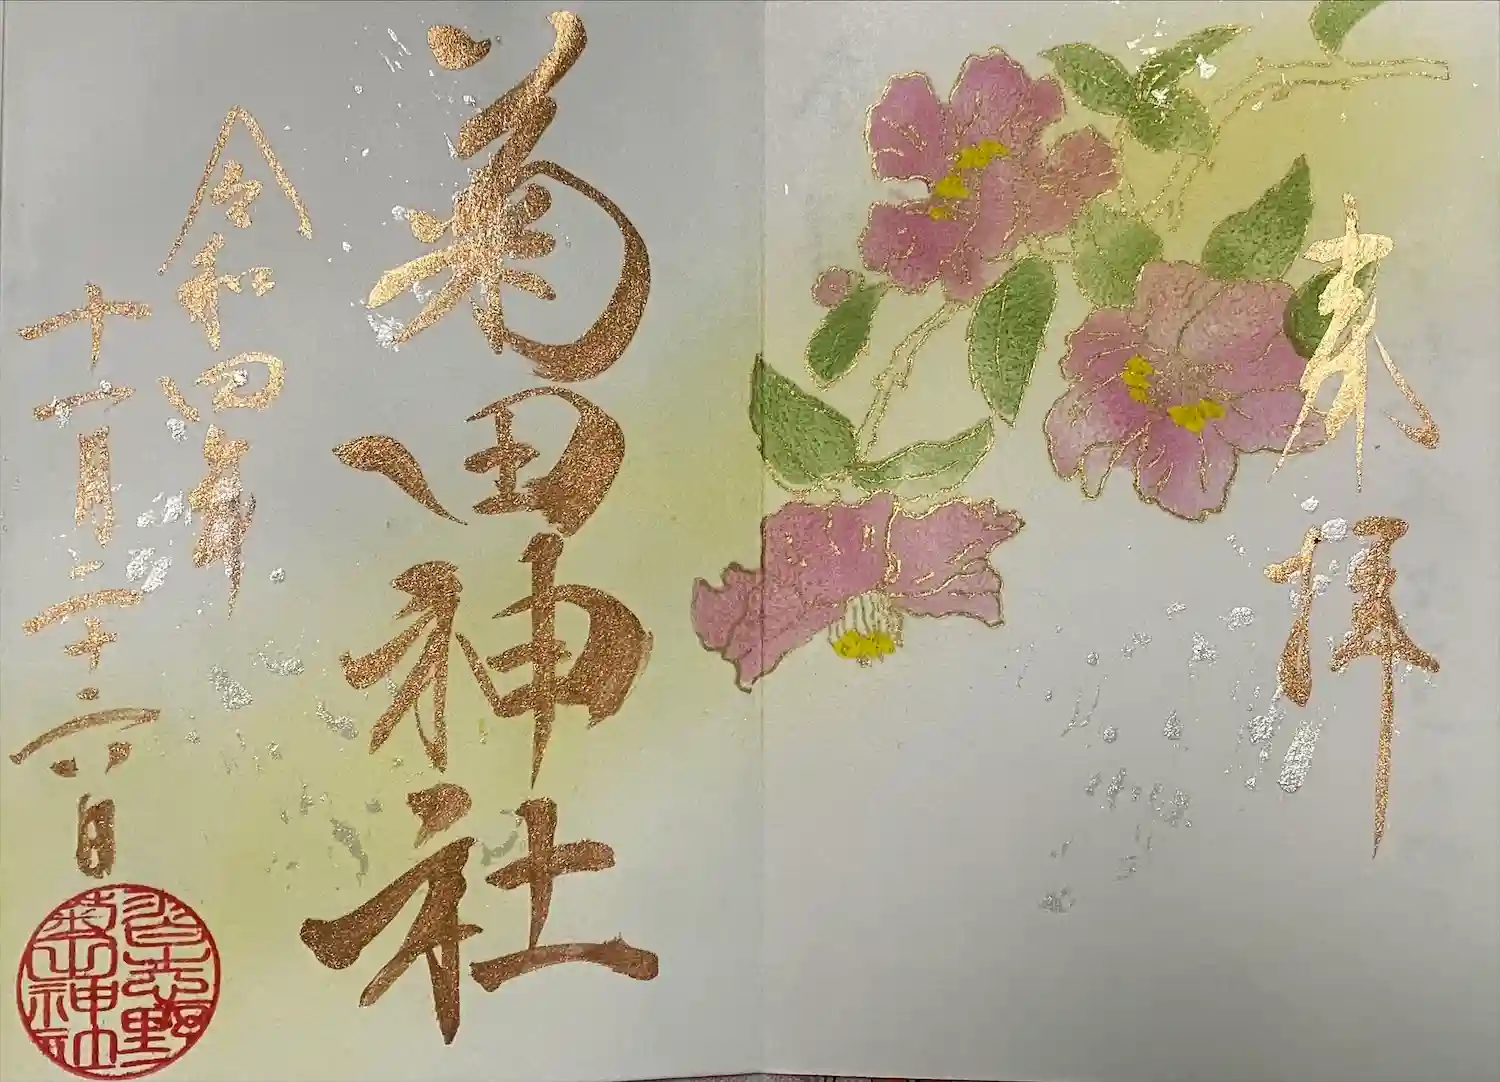 奉拝
菊田神社
令和四年
十一月二十六日
菊田神社